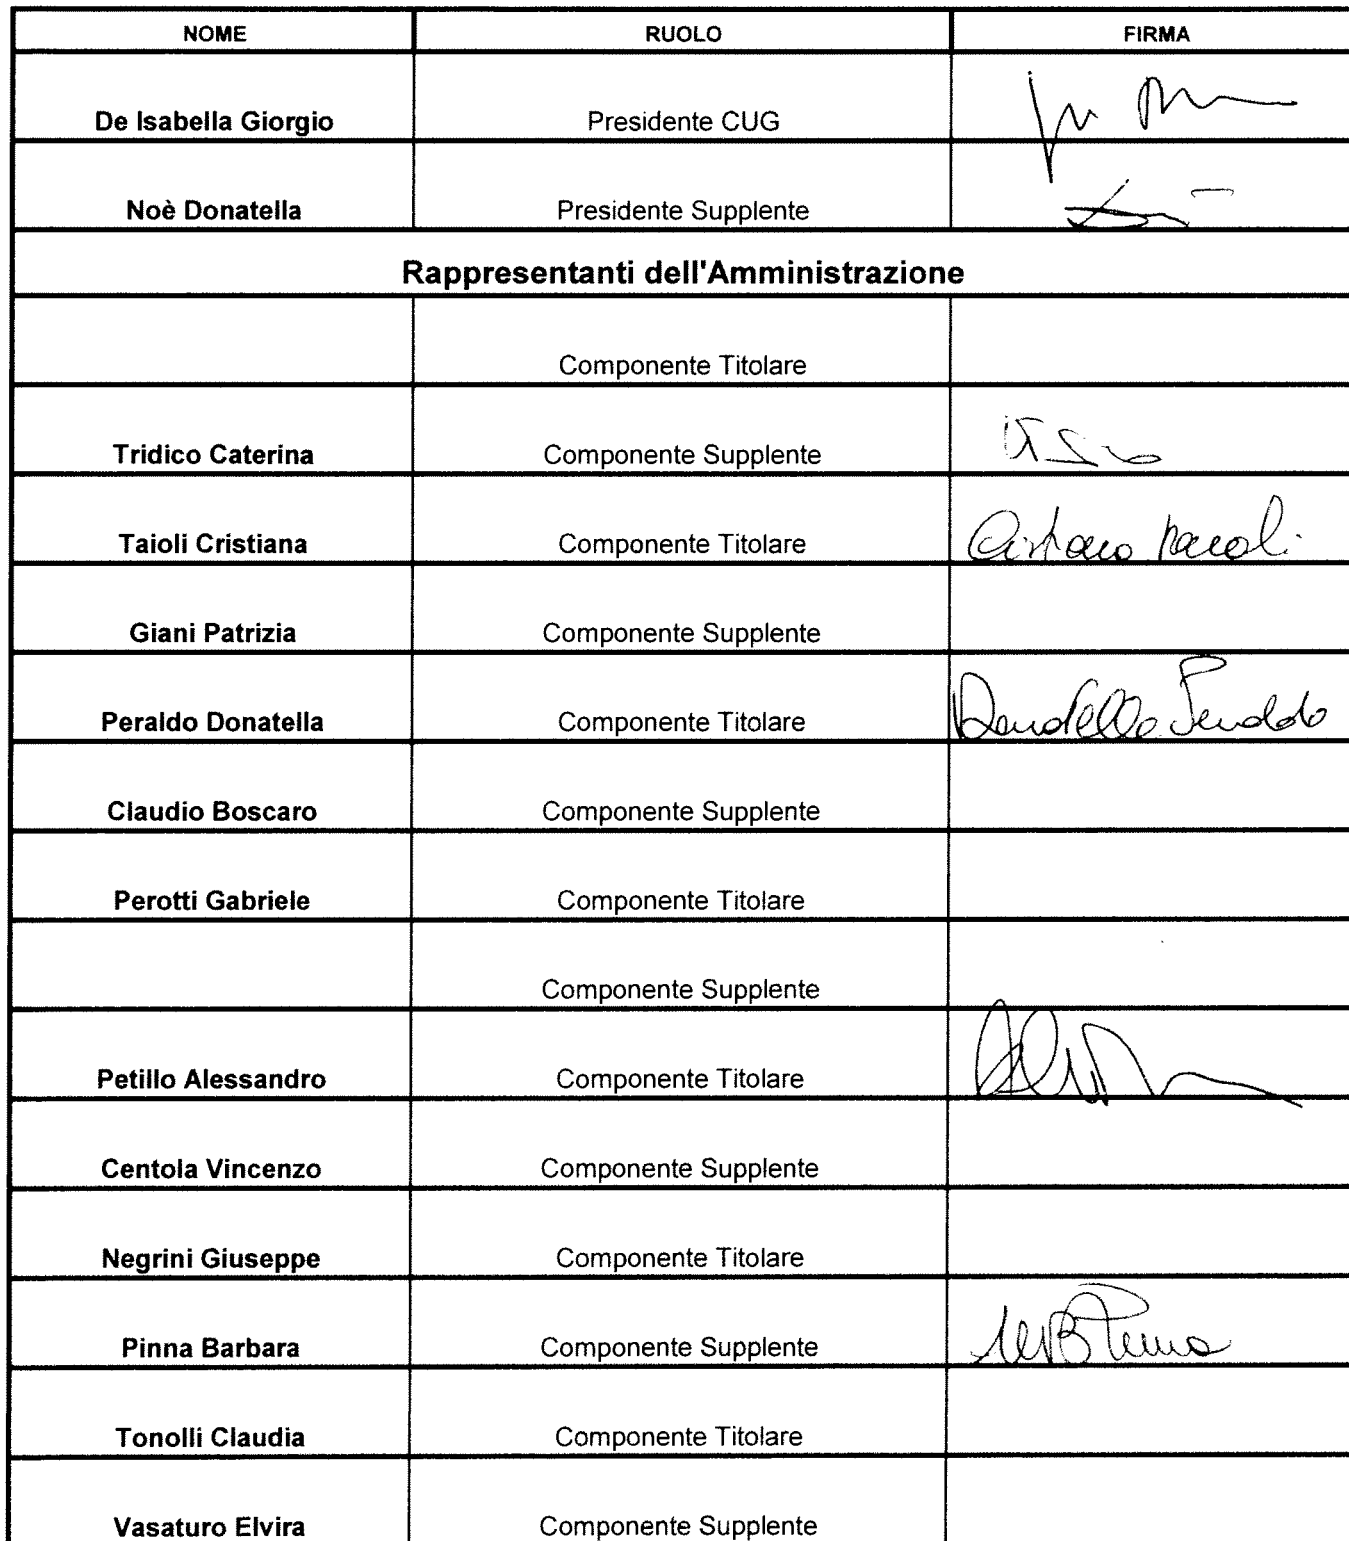 NOME RUOLO FIRMA
De Isabella Giorgio Presidente CUG
Noè Donatella Presidente Supplente
Rappresentanti dell'Amministrazione
Componente Titolare
Tridico Caterina Componente Supplente
Taioli Cristiana Componente Titolare
Giani Patrizia Componente Supplente
Peraldo Donatella Componente Titolare Donatella Peraldo
Claudio Boscaro Componente Supplente
Perotti Gabriele Componente Titolare
Componente Supplente
Petillo Alessandro Componente Titolare
Centola Vincenzo Componente Supplente
Negrini Giuseppe Componente Titolare
Pinna Barbara Componente Supplente
Tonolli Claudia Componente Titolare
Vasaturo Elvira Componente Supplente